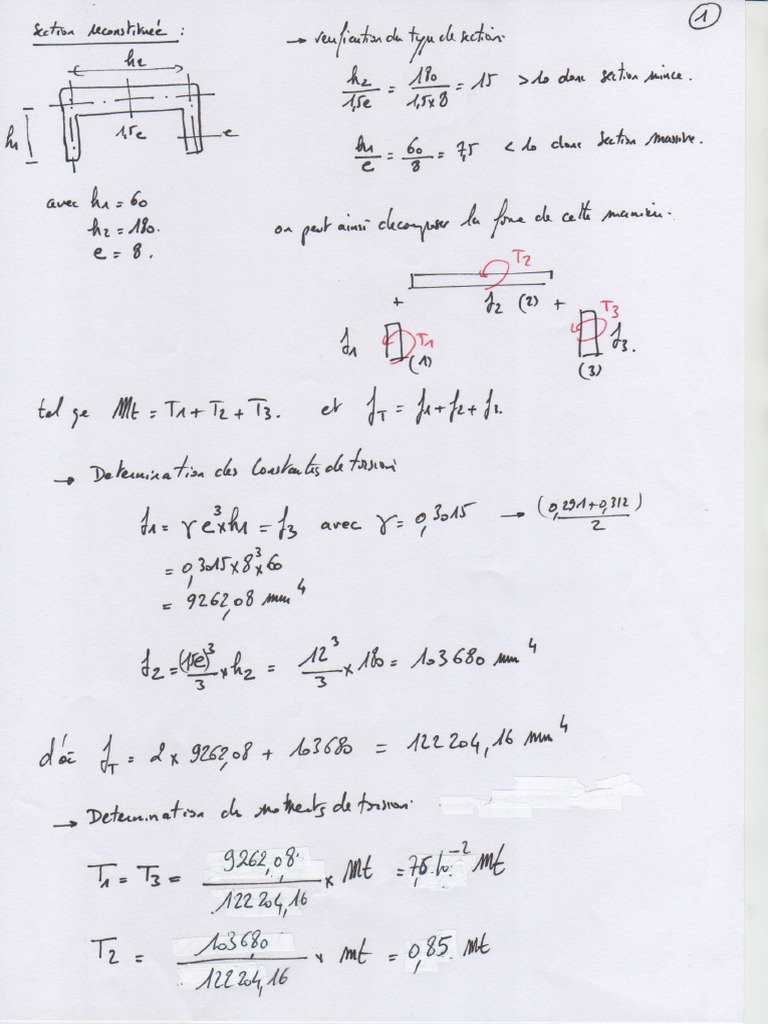 1
Section reconstituée :
h2
h1
1,5e
e
avec h1 = 60
h2 = 180.
e = 8.
→ verification du type de section.
h2/1,5e = 180/1,5x8 = 15 > 10 donc section mince.
h1/e = 60/8 = 7,5 < 10 donc section massive.
on peut ainsi decomposer la forme de cette maniere.
T2
+ J2 (2) +
J1 T1 (1)
T3 J3.
(3)
tel que Mt = T1 + T2 + T3. et JT = J1 + J2 + J3.
→ Determination des constantes de torsion
J1 = γ e³ x h1 = J3 avec γ = 0,3015 → (0,291+0,312)/2
= 0,3015 x 8³ x 60
= 9262,08 mm⁴
J2 = (1,5e)³/3 x h2 = 12³/3 x 180 = 103680 mm⁴
d'où JT = 2 x 9262,08 + 103680 = 122204,16 mm⁴
→ Determination des moments de torsion.
T1 = T3 = 9262,08/122204,16 x Mt = 7,6.10⁻² Mt
T2 = 103680/122204,16 x mt = 0,85 Mt